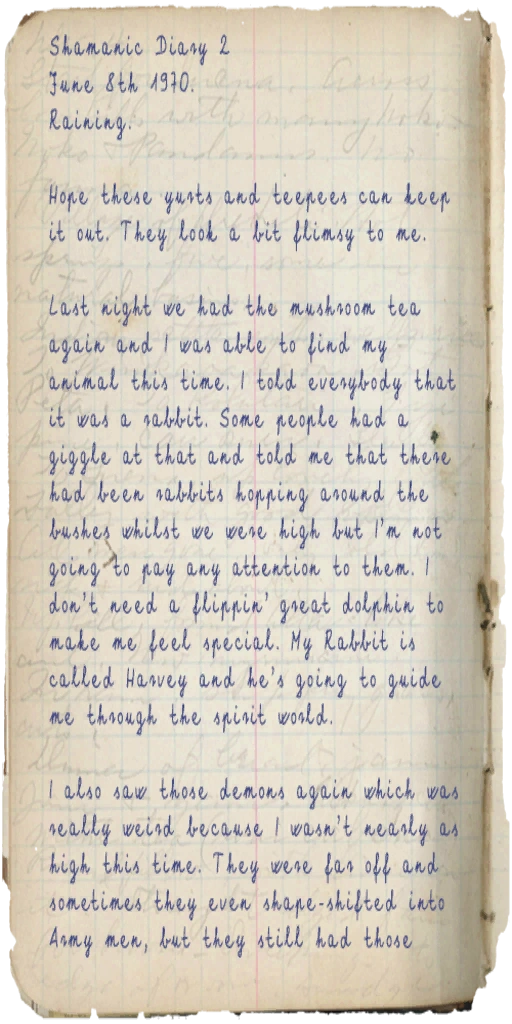 Shamanic Diary 2
June 8th 1970.
Raining.
Hope these yurts and teepees can keep
it out. They look a bit flimsy to me.
Last night we had the mushroom tea
again and I was able to find my
animal this time. I told everybody that
it was a rabbit. Some people had a
giggle at that and told me that there
had been rabbits hopping around the
bushes whilst we were high but I'm not
going to pay any attention to them. I
don't need a flippin' great dolphin to
make me feel special. My Rabbit is
called Harvey and he's going to guide
me through the spirit world.
I also saw those demons again which was
really weird because I wasn't nearly as
high this time. They were far off and
sometimes they even shape-shifted into
Army men, but they still had those